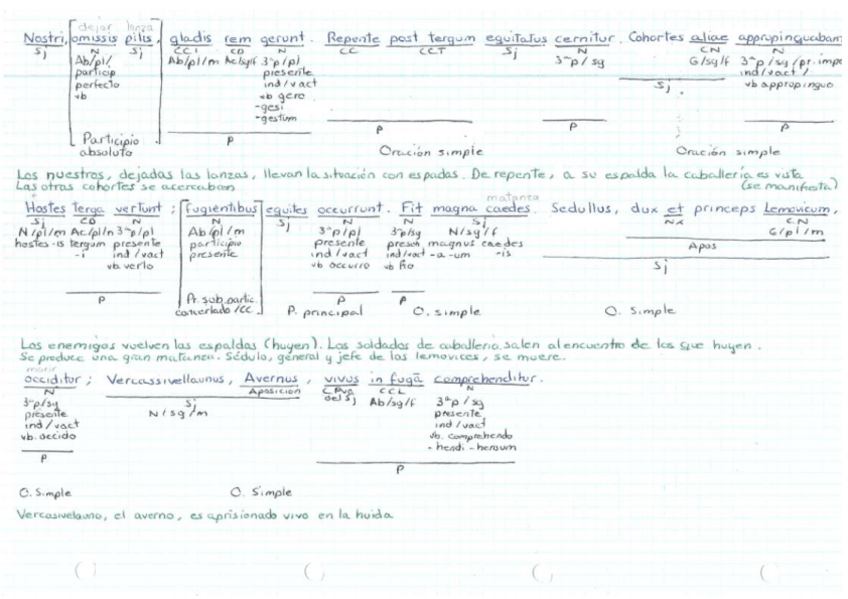 dejar lanza
Nostri, omissis pilis, gladis rem gerunt. Repente post tergum equitatus cernitur. Cohortes aliae appropinquabam
Sj N Sj CCI CD N CC CCT Sj N CN N
Ab/pl/ Ab/pl/m Ac/sg/f 3ªp/pl 3ªp/sg G/sg/f 3ªp/sg/pr. impe
particip presente ind/vact/
perfecto ind/vact Sj. vb appropinquo
vb vb gero
-gesi
-gestum
P P P P
Participio
absoluto Oración simple Oración simple
Los nuestros, dejadas las lanzas, llevan la situación con espadas. De repente, a su espalda la caballería es vista
Las otras cohortes se acercaban (se manifiesta)
matanza
Hostes Terga vertunt; fugientibus equites occurrunt. Fit magna caedes. Sedullus, dux et princeps Lemovicum,
Sj CD N N Sj N N Sj Nx CN
N/pl/m Ac/pl/n 3ªp/pl Ab/pl/m 3ªp/pl 3ªp/sg N/sg/f G/pl/m
hostes-is tergum presente participio presente presen magnus caedes Apos
-i ind/vact presente ind/vact ind/vact -a-um -is Sj
vb. verto vb occurro vb fio
P P P
Pr. sub. partic.
concertado/CC. P. principal O. simple O. Simple
Los enemigos vuelven las espaldas (huyen). Los soldados de caballería salen al encuentro de los que huyen.
Se produce una gran matanza. Sédulo, general y jefe de los lemovices, se muere.
morir
occiditur; Vercassivellaunus, Avernus, vivus in fugā comprehenditur.
N Sj Aposición CPvo del Sj CCL N
3ªp/sg N/sg/m Ab/sg/f 3ªp/sg
presente presente
ind/vact ind/vact
vb. occido vb. comprehendo
-hendi -hensum
P P
O. Simple O. Simple
Vercasivelauno, el averno, es aprisionado vivo en la huida